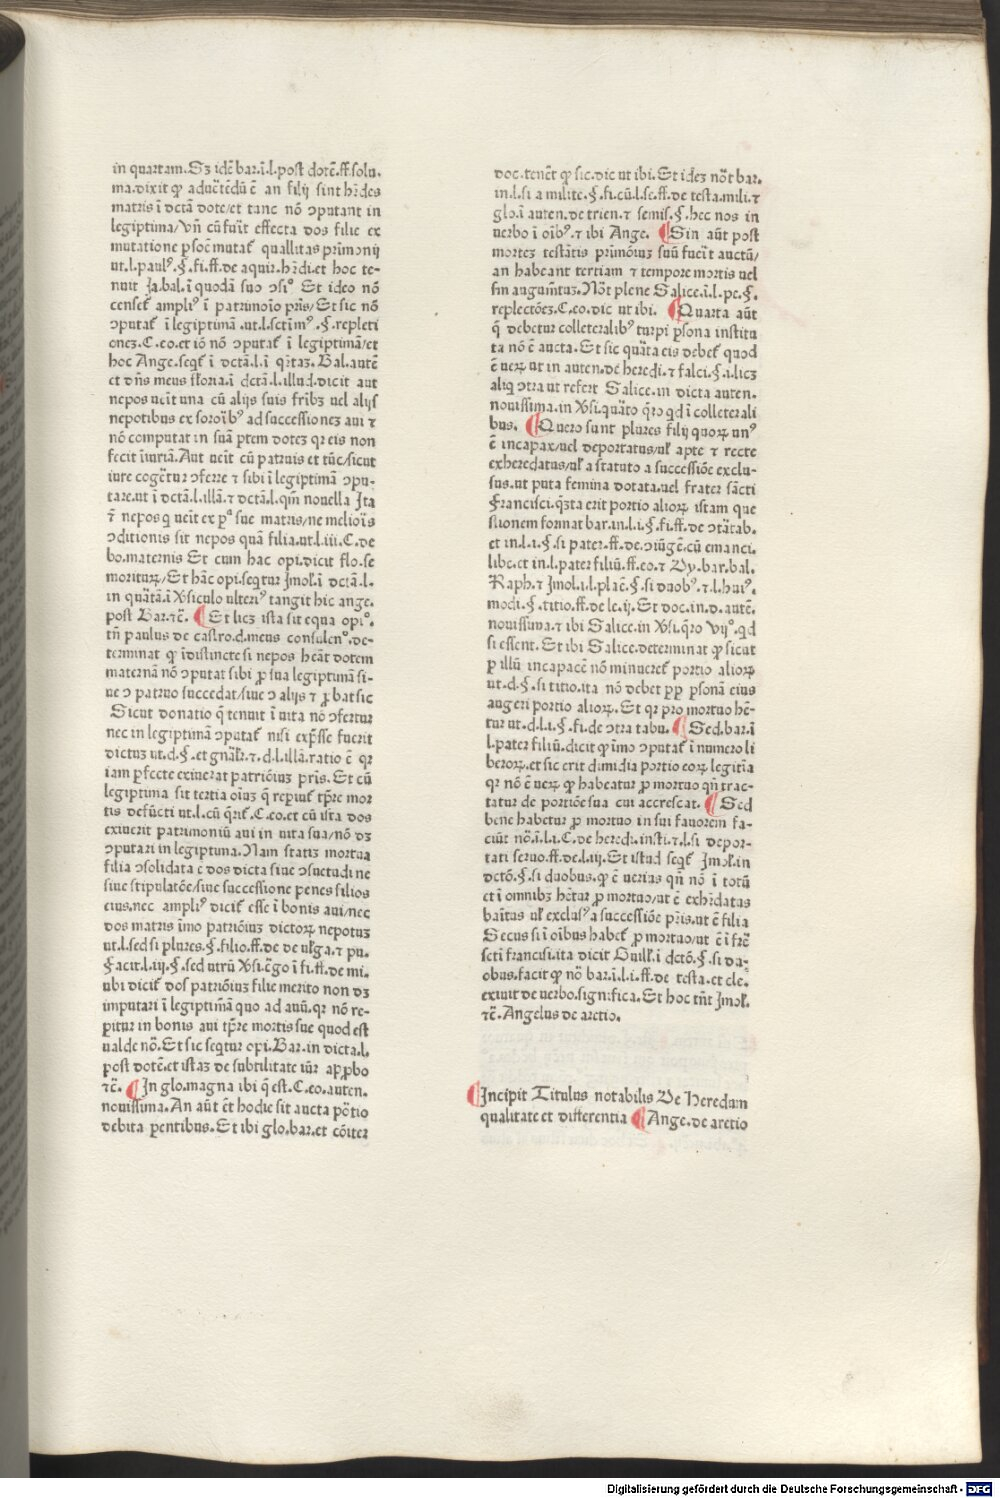 in quartam. Sꝫ idē bar. ī. l. post dotē. ff. solu.
ma. dixit ꝙ aduētēdū ē an filij sint hr̄des
matris ī dctā dote / et tunc nō ɔputant in
legiptima / Vn̄ cū fuīt effecta dos filie ex
mutatione ꝑsoē mutat᷑ quallitas prīmonij
ut. l. paulꝰ. §. fi. ff. de aquir. hr̄di. et hoc te-
nuit Ja. bal. ī quodā suo ɔsiº Et ideo nō
censet᷑ ampliꝰ ī patrimoīo prīs / Et sic nō
ɔputat᷑ ī legiptimā. ut. l. sctīmꝰ. §. repleti
onez. C. eo. et iō nō ɔputat᷑ ī legiptimā / et
hoc Ange. seqt᷑ ī dctā. l. ī qr̄taꝫ. Bal. autē
et dn̄s meus floria. ī dctā. l. illud. dicit aut
nepos ueīt una cū alijs suis frībꝫ uel alijs
nepotibus ex soroībꝰ ad successionez aui ⁊
nō computat in suā ptem dotez qr eis non
fecit īiuriā. Aut ueīt cū patruis et tūc / sicut
iure cogētur ɔferre ⁊ sibi ī legiptimā ɔpu-
tare. ut ī dctā. l. illā. ⁊ dctā. l. qm̄ nouella Jta
⁊ nepos q ueīt ex pª sue matris / ne melioīs
ɔditionis sit nepos quā filia. ut. l. iii. C. de
bo. maternis Et cum hac opi. dicit flo. se
moriturꝫ / Et hāc opi. seqtur Jmol. ī dctā. l.
in quātā. ī Vsiculo ulteriꝰ tangit hic ange.
post Bar. ⁊c̄. ¶ Et licꝫ ista sit equa opiº.
tn̄ paulus de castro. d. meus consulenº. de-
terminat ꝙ īdistincte si nepos hēāt dotem
maternā nō ɔputat sibi ꝓ sua legiptimā si-
ue ɔ patruo succedat / siue ɔ alijs ⁊ ꝓbat sic
Sicut donatio q̄ tenuit ī uita nō ɔfertur
nec in legiptimā ɔputat᷑ nisi exp̄sse fuerit
dictuꝫ ut. d. §. et gnāl. ⁊. d. l. illā. ratio ē qr
iam ꝑfecte exiuerat patrīoīuꝫ pris. Et cū
legiptima sit tertia oīuꝫ q̄ reꝑiūt᷑ tp̄re mor
tis defūcti ut. l. cū qrīt᷑. C. eo. et cū ista dos
exiuerit patrimoniū aui in uita sua / nō dꝫ
ɔputari in legiptima. Nam statiꝫ mortua
filia ɔsolidata ē dos dicta siue ɔsuetudine
siue stipulatōe / siue successione penes filios
eius. nec ampliꝰ dicit᷑ esse ī bonis aui / nec
dos matris īmo patrīoīuꝫ dictoꝝ nepotuꝫ
ut. l. sed si plures. §. filio. ff. de de ulga. ⁊ pu.
facit. l. iij. §. sed utrū Vsi. ēgo ī fi. ff. de mi.
ubi dicit᷑ dos patrīoīuꝫ filie merito non dꝫ
imputari ī legiptimā quo ad auū. qr nō re-
pitur in bonis aui tp̄re mortis sue quod est
ualde nō. Et sic seqtur opi. Bar. in dicta. l.
post dotē. et istaꝫ de subtilitate iūr apꝓbo
⁊c̄. ¶ In glo. magna ibi q̄ est. C. eo. auten.
nouissima. An aūt ēt hodie sit aucta pōtio
debita ꝑentibus. Et ibi glo. bar. et cōiter
doc. tenēt ꝙ sic. dic ut ibi. Et ideꝫ nōt bar.
in. l. si a milite. §. fi. cū. l. se. ff. de testa. mili. ⁊
glo. ī auten. de trien. ⁊ semis. §. hec nos in
uerbo ī oībꝰ. ⁊ ibi Ange. ¶ Sin aūt post
morteꝫ testātis prīmōiuꝫ suū fueīt auctū /
an habeant tertiam ⁊ tempore mortis uel
fm augum̄tuꝫ. Nōt plene Salice. ī. l. pe. §.
replectōeꝫ. C. eo. dic ut ibi. ¶ Quarta aūt
q̄ debetur colleteralibꝰ turpi ꝑsona institu
ta nō ē aucta. Et sic quāta eis debet᷑ quod
ē ueꝝ ut in auten. de heredi. ⁊ falci. §. ī. licꝫ
aliq ɔtra ut refert Salice. in dicta auten.
nouissima. in Vsi. quāto qr̄o qd ī colleterali
bus. ¶ Quero sunt plures filij quoꝝ unꝰ
ē incapax / uel deportatus / ul᷑ apte ⁊ recte
exheredatus / ul᷑ a statuto a successiōe exclu-
sus. ut puta femina dotata. uel frater sācti
Francisci. q̄sta erit portio alioꝝ istam que
stionem format bar. in. l. i. §. fi. ff. de ɔtātab.
et in. l. ī. §. si pater. ff. de. ɔiūgē. cū emanci.
libe. et in. l. pater filiū. ff. eo. ⁊ Dy. bar. bal.
Raph. ⁊ Jmol. i. l. placē. §. si duobꝰ. ⁊. l. huiꝰ.
modi. §. titio. ff. de le. ij. Et doc. in. d. autē.
nouissima. ⁊ ibi Salice. in Vsi. qr̄o Vijº. qd
si essent. Et ibi Salice. determinat ꝙ sicut
ꝑ illū incapacē nō minueret᷑ portio alioꝝ
ut. d. §. si titio. ita nō debet ꝓp ꝑsonā eius
augeri portio alioꝝ. Et qr pro mortuo hē-
tur ut. d. l. ī. §. fi. de ɔtra tabu. ¶ Sed. bar. ī
l. pater filiū. dicit ꝙ īmo ɔputat᷑ ī numero li
beroꝝ. et sic erit dimidia portio eoꝝ legitīa
qr nō ē ueꝝ ꝙ habeatur ꝓ mortuo qn̄ trac-
tatur de portiōe sua cui accrescat. ¶ Sed
bene habetur ꝓ mortuo in sui fauorem fa-
ciūt nō. ī. l. ī. C. de heredi. insti. ⁊. l. si depor-
tati seruo. ff. de. l. iij. Et istud seqt᷑ Jmol. in
dctō. §. si duobus. ꝙ ē uerius qn̄ nō ī totū
et ī omnibꝫ hētur ꝓ mortuo / ut ē exhr̄datus
banītus ul᷑ exclusꝰ a successiōe pris. ut ē filia
Secus si ī oībus habet᷑ ꝓ mortuo / ut ē ī frē
scti francisi. ita dicit Guill. ī dctō. §. si du-
obus. facit ꝙ nō bar. ī. l. ī. ff. de testa. et ele.
exiuit de uerbo. signifi ca. Et hoc tn̄t Jmol.
⁊c̄. Angelus de aretio.
¶ Incipit Titulus notabilis De Heredum
qualitate et differentia ¶ Ange. de aretio
Digitalisierung gefördert durch die Deutsche Forschungsgemeinschaft - DFG